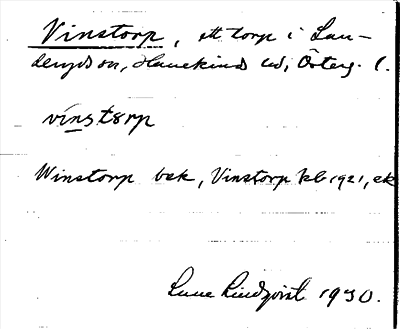 Vinstorp, ett torp i Lan-
deryds sn, Hanekinds hd, Österg. l.
vinstɜrp
Winstorp bek, Vinstorp kb 1921, ek
Sune Lindqvist 1930.